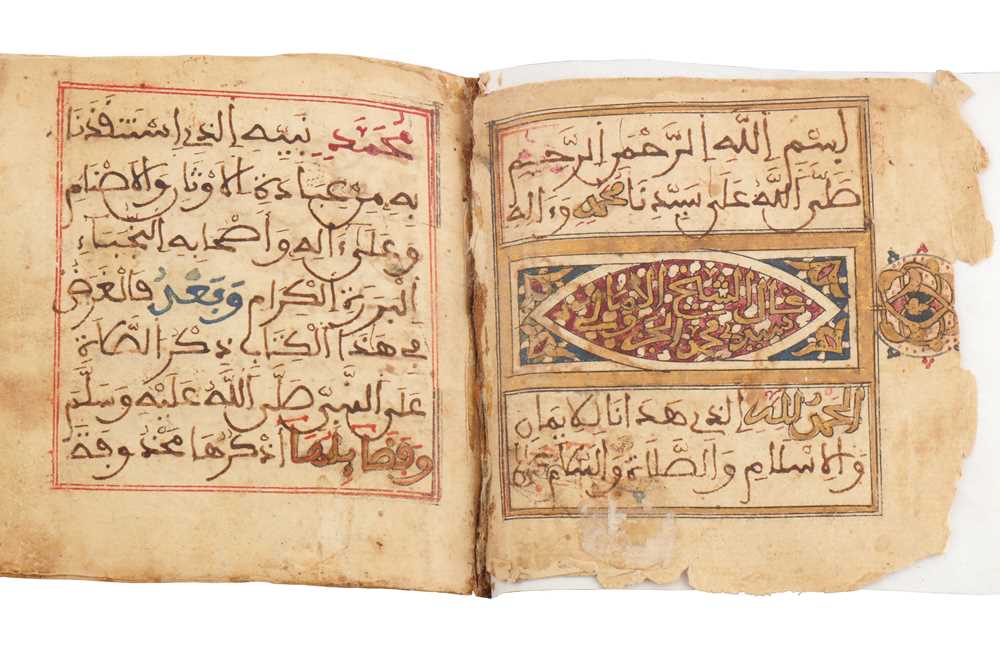 بسم الله الرحمن الرحيم
صلى الله على سيدنا محمد وءاله
قال الشيخ الامام
سيدي محمد الجزولي
الحمد لله الذي هدانا للايمان
والاسلام والصلاة والسلام على
محمد نبيه الذي استنقذنا
به من عبادة الاوثان والاصنام
وعلى ءاله واصحابه النجباء
البررة الكرام وبعد فالغرض
في هذا الكتاب ذكر الصلاة
على النبي صلى الله عليه وسلم
وفضايلها اذكرها محذوفة